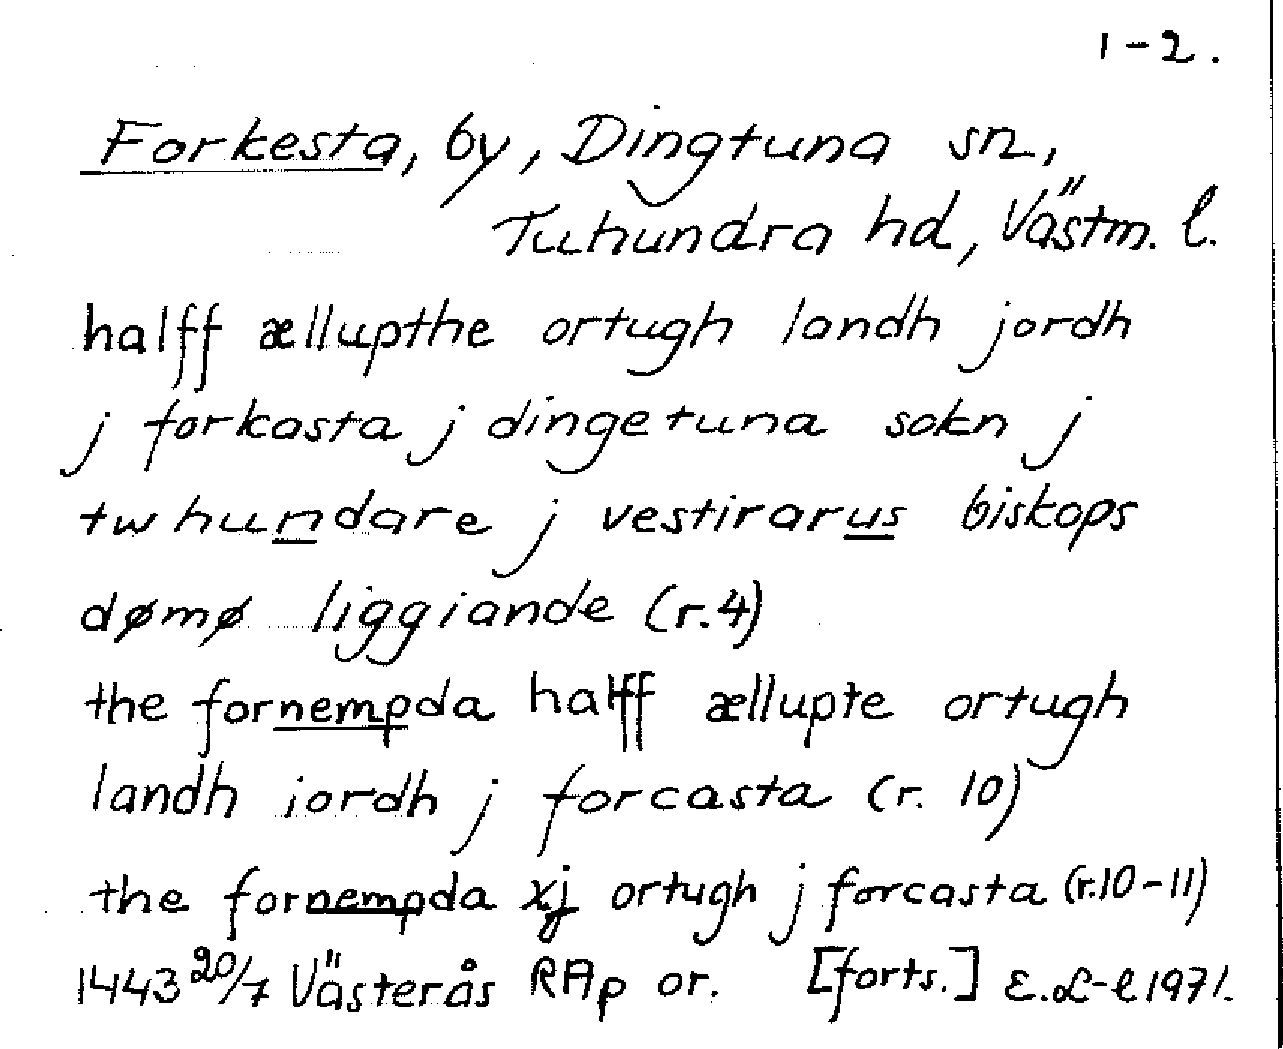 1-2.
Forkesta, by, Dingtuna sn,
Tuhundra hd, Västm. l.
halff ællupthe ortugh landh jordh
j forkasta j dingetuna sokn j
twhundare j vestirarus biskops
dømø liggiande (r.4)
the fornempda halff ællupte ortugh
landh iordh j forcasta (r. 10)
the fornempda xj ortugh j forcasta (r.10-11)
1443 20/7 Västerås RAp or. [forts.] E.L-l 1971.